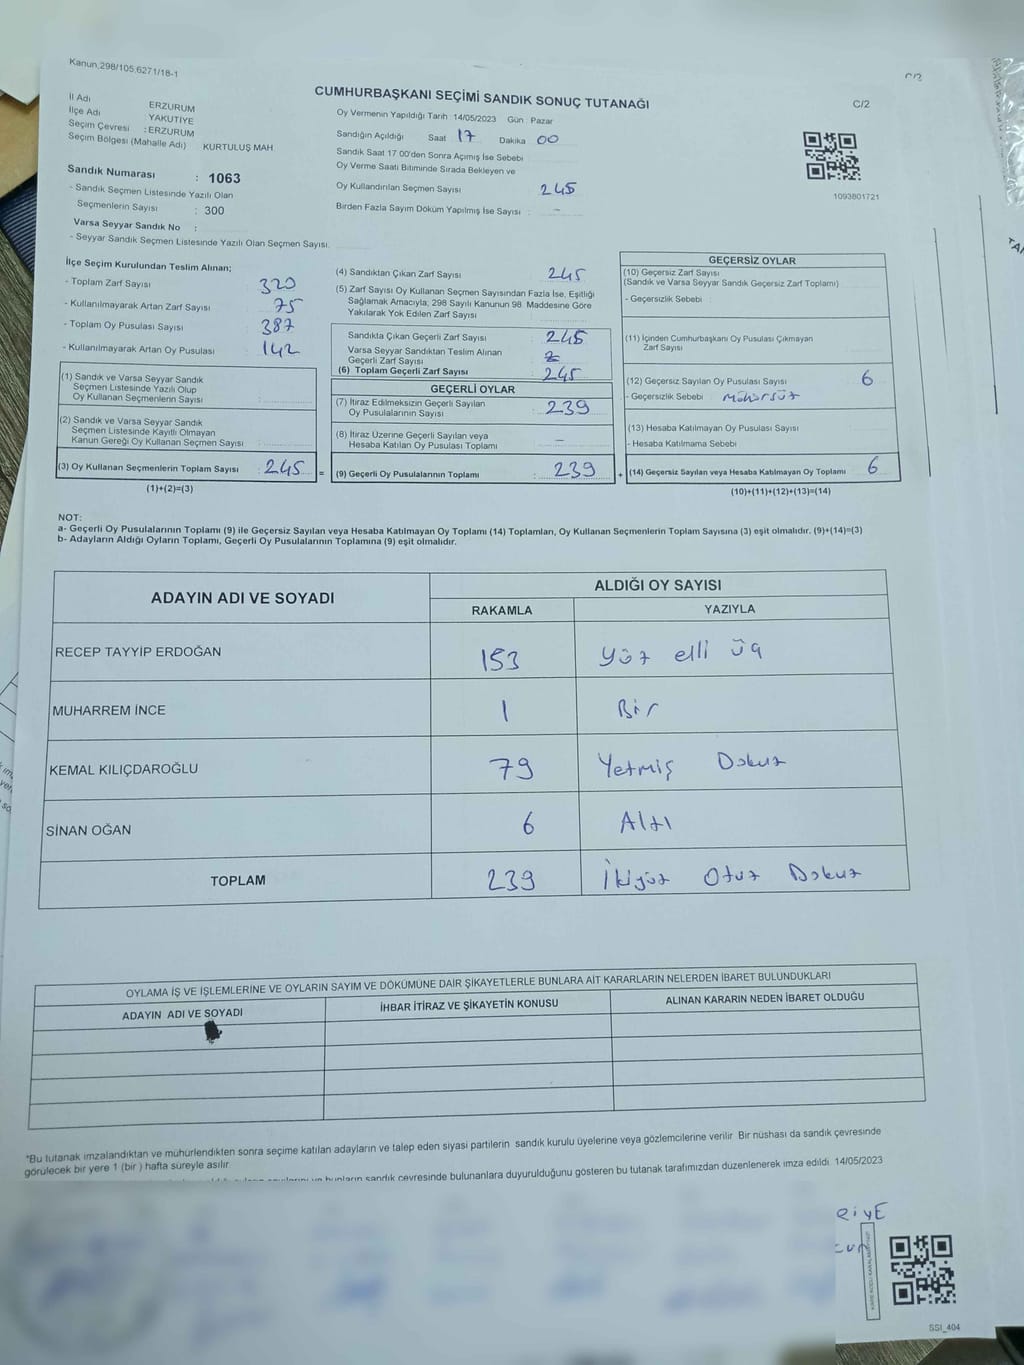 Kanun.298/105,6271/18-1
C/2
CUMHURBAŞKANI SEÇİMİ SANDIK SONUÇ TUTANAĞI
C/2
İl Adı ERZURUM
İlçe Adı YAKUTİYE
Seçim Çevresi : ERZURUM
Seçim Bölgesi (Mahalle Adı) KURTULUŞ MAH.
Oy Vermenin Yapıldığı Tarih 14/05/2023 Gün : Pazar
Sandığın Açıldığı Saat 17 Dakika 00
Sandık Saat 17.00'den Sonra Açımış İse Sebebi
Oy Verme Saati Bitiminde Sırada Bekleyen ve
Oy Kullandırılan Seçmen Sayısı 245
Birden Fazla Sayım Döküm Yapılmış İse Sayısı : -
1093801721
Sandık Numarası : 1063
- Sandık Seçmen Listesinde Yazılı Olan
Seçmenlerin Sayısı : 300
Varsa Seyyar Sandık No :
- Seyyar Sandık Seçmen Listesinde Yazılı Olan Seçmen Sayısı:
İlçe Seçim Kurulundan Teslim Alınan;
- Toplam Zarf Sayısı 320
- Kullanılmayarak Artan Zarf Sayısı 75
- Toplam Oy Pusulası Sayısı 387
- Kullanılmayarak Artan Oy Pusulası 142
(1) Sandık ve Varsa Seyyar Sandık
Seçmen Listesinde Yazılı Olup
Oy Kullanan Seçmenlerin Sayısı :
(2) Sandık ve Varsa Seyyar Sandık
Seçmen Listesinde Kayıtlı Olmayan
Kanun Gereği Oy Kullanan Seçmen Sayısı :
(3) Oy Kullanan Seçmenlerin Toplam Sayısı : 245 =
(1)+(2)=(3)
(4) Sandıktan Çıkan Zarf Sayısı 245
(5) Zarf Sayısı Oy Kullanan Seçmen Sayısından Fazla İse, Eşitliği
Sağlamak Amacıyla; 298 Sayılı Kanunun 98. Maddesine Göre
Yakılarak Yok Edilen Zarf Sayısı
Sandıkta Çıkan Geçerli Zarf Sayısı 245
Varsa Seyyar Sandıktan Teslim Alınan
Geçerli Zarf Sayısı
(6) Toplam Geçerli Zarf Sayısı 245
GEÇERLİ OYLAR
(7) İtiraz Edilmeksizin Geçerli Sayılan
Oy Pusulalarının Sayısı : 239
(8) İtiraz Üzerine Geçerli Sayılan veya
Hesaba Katılan Oy Pusulası Toplamı : -
(9) Geçerli Oy Pusulalarının Toplamı : 239 +
GEÇERSİZ OYLAR
(10) Geçersiz Zarf Sayısı
(Sandık ve Varsa Seyyar Sandık Geçersiz Zarf Toplamı)
- Geçersizlik Sebebi :
(11) İçinden Cumhurbaşkanı Oy Pusulası Çıkmayan
Zarf Sayısı
(12) Geçersiz Sayılan Oy Pusulası Sayısı 6
- Geçersizlik Sebebi : Mühürsüz
(13) Hesaba Katılmayan Oy Pusulası Sayısı
- Hesaba Katılmama Sebebi
(14) Geçersiz Sayılan veya Hesaba Katılmayan Oy Toplamı 6
(10)+(11)+(12)+(13)=(14)
NOT:
a- Geçerli Oy Pusulalarının Toplamı (9) ile Geçersiz Sayılan veya Hesaba Katılmayan Oy Toplamı (14) Toplamları, Oy Kullanan Seçmenlerin Toplam Sayısına (3) eşit olmalıdır. (9)+(14)=(3)
b- Adayların Aldığı Oyların Toplamı, Geçerli Oy Pusulalarının Toplamına (9) eşit olmalıdır.
ADAYIN ADI VE SOYADI ALDIĞI OY SAYISI
RAKAMLA YAZIYLA
RECEP TAYYİP ERDOĞAN 153 Yüz elli üç
MUHARREM İNCE 1 Bir
KEMAL KILIÇDAROĞLU 79 Yetmiş Dokuz
SİNAN OĞAN 6 Altı
TOPLAM 239 İkiyüz Otuz Dokuz
OYLAMA İŞ VE İŞLEMLERİNE VE OYLARIN SAYIM VE DÖKÜMÜNE DAİR ŞİKAYETLERLE BUNLARA AİT KARARLARIN NELERDEN İBARET BULUNDUKLARI
ADAYIN ADI VE SOYADI İHBAR İTİRAZ VE ŞİKAYETİN KONUSU ALINAN KARARIN NEDEN İBARET OLDUĞU
*Bu tutanak imzalandıktan ve mühürlendikten sonra seçime katılan adayların ve talep eden siyasi partilerin sandık kurulu üyelerine veya gözlemcilerine verilir Bir nüshası da sandık çevresinde
görülecek bir yere 1 (bir ) hafta süreyle asılır.
bunların sandık çevresinde bulunanlara duyurulduğunu gösteren bu tutanak tarafımızdan düzenlenerek imza edildi 14/05/2023
RİYE
SSI_404